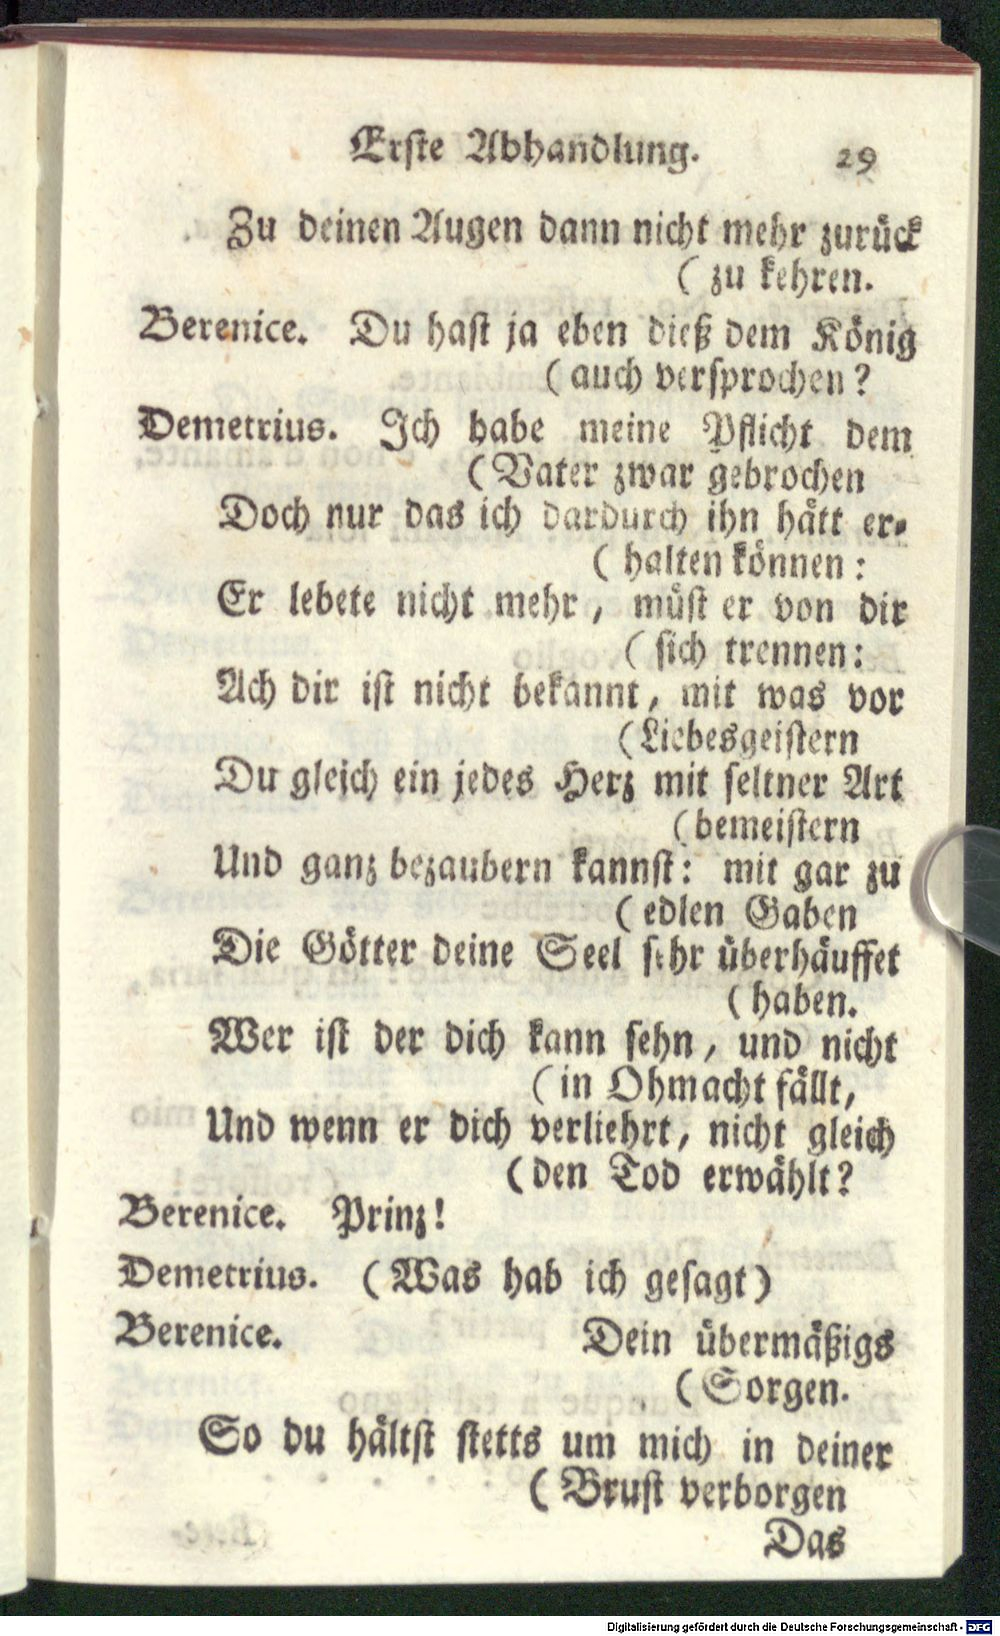 Erste Abhandlung. 29
Zu deinen Augen dann nicht mehr zurück
( zu kehren.
Berenice. Du hast ja eben dieß dem König
( auch versprochen?
Demetrius. Ich habe meine Pflicht dem
( Vater zwar gebrochen
Doch nur das ich dardurch ihn hätt er-
( halten können:
Er lebete nicht mehr, müst er von dir
( sich trennen:
Ach dir ist nicht bekannt, mit was vor
(Liebesgeistern
Du gleich ein jedes Herz mit seltner Art
(bemeistern
Und ganz bezaubern kannst: mit gar zu
( edlen Gaben
Die Götter deine Seel sehr überhäuffet
( haben.
Wer ist der dich kann sehn, und nicht
( in Ohmacht fällt,
Und wenn er dich verliehrt, nicht gleich
( den Tod erwählt?
Berenice. Prinz!
Demetrius. ( Was hab ich gesagt)
Berenice. Dein übermäßigs
( Sorgen.
So du hältst stetts um mich in deiner
( Brust verborgen
Das
Digitalisierung gefördert durch die Deutsche Forschungsgemeinschaft - DFG